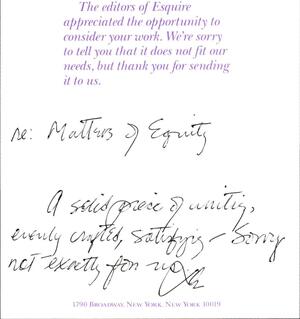 The editors of Esquire
appreciated the opportunity to
consider your work. We're sorry
to tell you that it does not fit our
needs, but thank you for sending
it to us.
re: Matters of Equity
A solid piece of writing,
evenly crafted, satisfying – Sorry
not exactly for us
1790 BROADWAY, NEW YORK, NEW YORK 10019